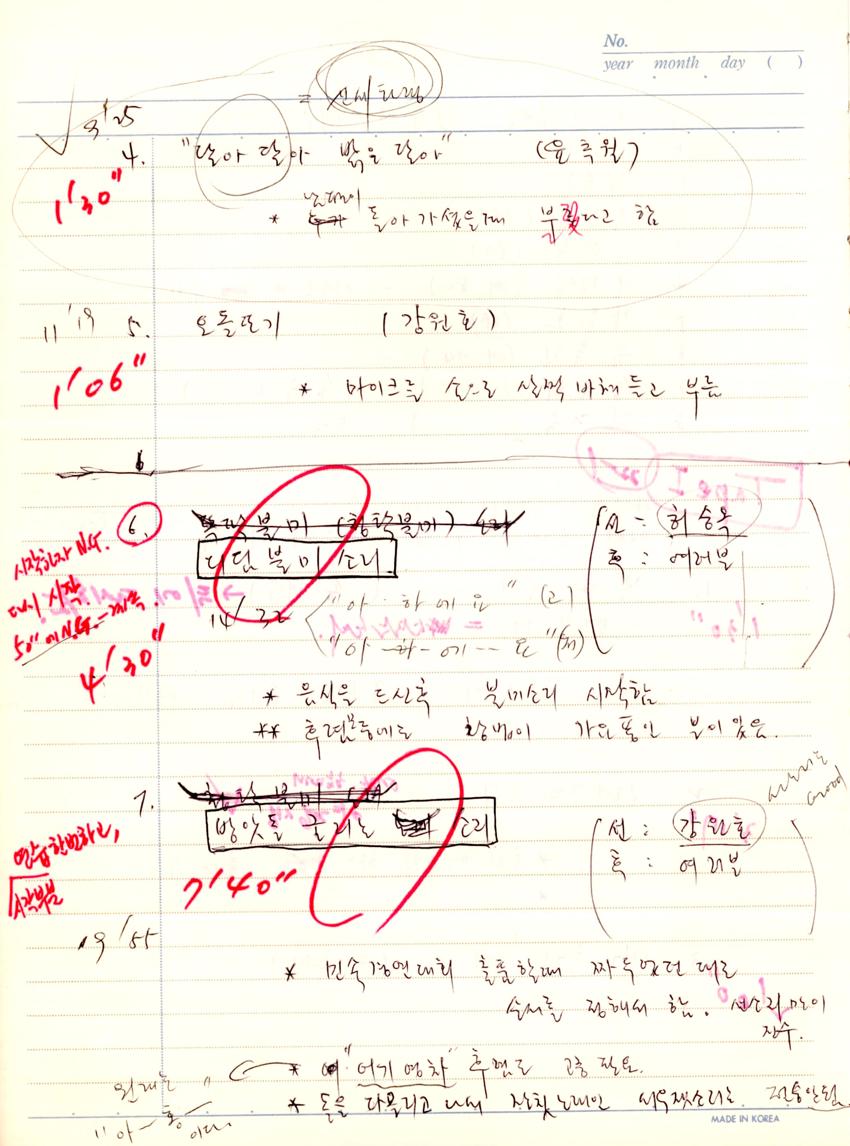 No.
year month day ( )
= 신세타령
3'25
4. "달아 달아 밝은 달아" (윤추월)
1'30"
* 남편이 돌아가셨을때 불렀다고 함
11'19 5. 오돌또기 (강원호)
1'06"
* 마이크를 손으로 살짝 바쳐들고 부름
6
6. 불미 (청탁불미) 소리
디딤불미소리
선: 허승옥
훅: 여러분
시작하자 N.G.
다시 시작.
50"에 N.G. —계속
4'30"
14/32
"아·하 에 요" (고)
"아-하-에--요" (저)
* 음식을 드신후 불미소리 시작함
** 후렴부분에는 창법이 가요풍인 분이 있음.
7. 청탁불미
방앗돌 굴리는 소리
선: 강원호
훅: 여러분
사소리는
Good
연습한번하고,
시작부분
7'40"
19/55
* 민속경연대회 출품할때 짜두었던 대로
순서를 정해서 함. 선소리만이
장수.
* "어기영차" 후렴도 고증 필요.
원래는 "
"아—홍—이다.
* 돌을 다 올리고 나서 잔칫노래인 서우젯소리는 전승안됨
MADE IN KOREA